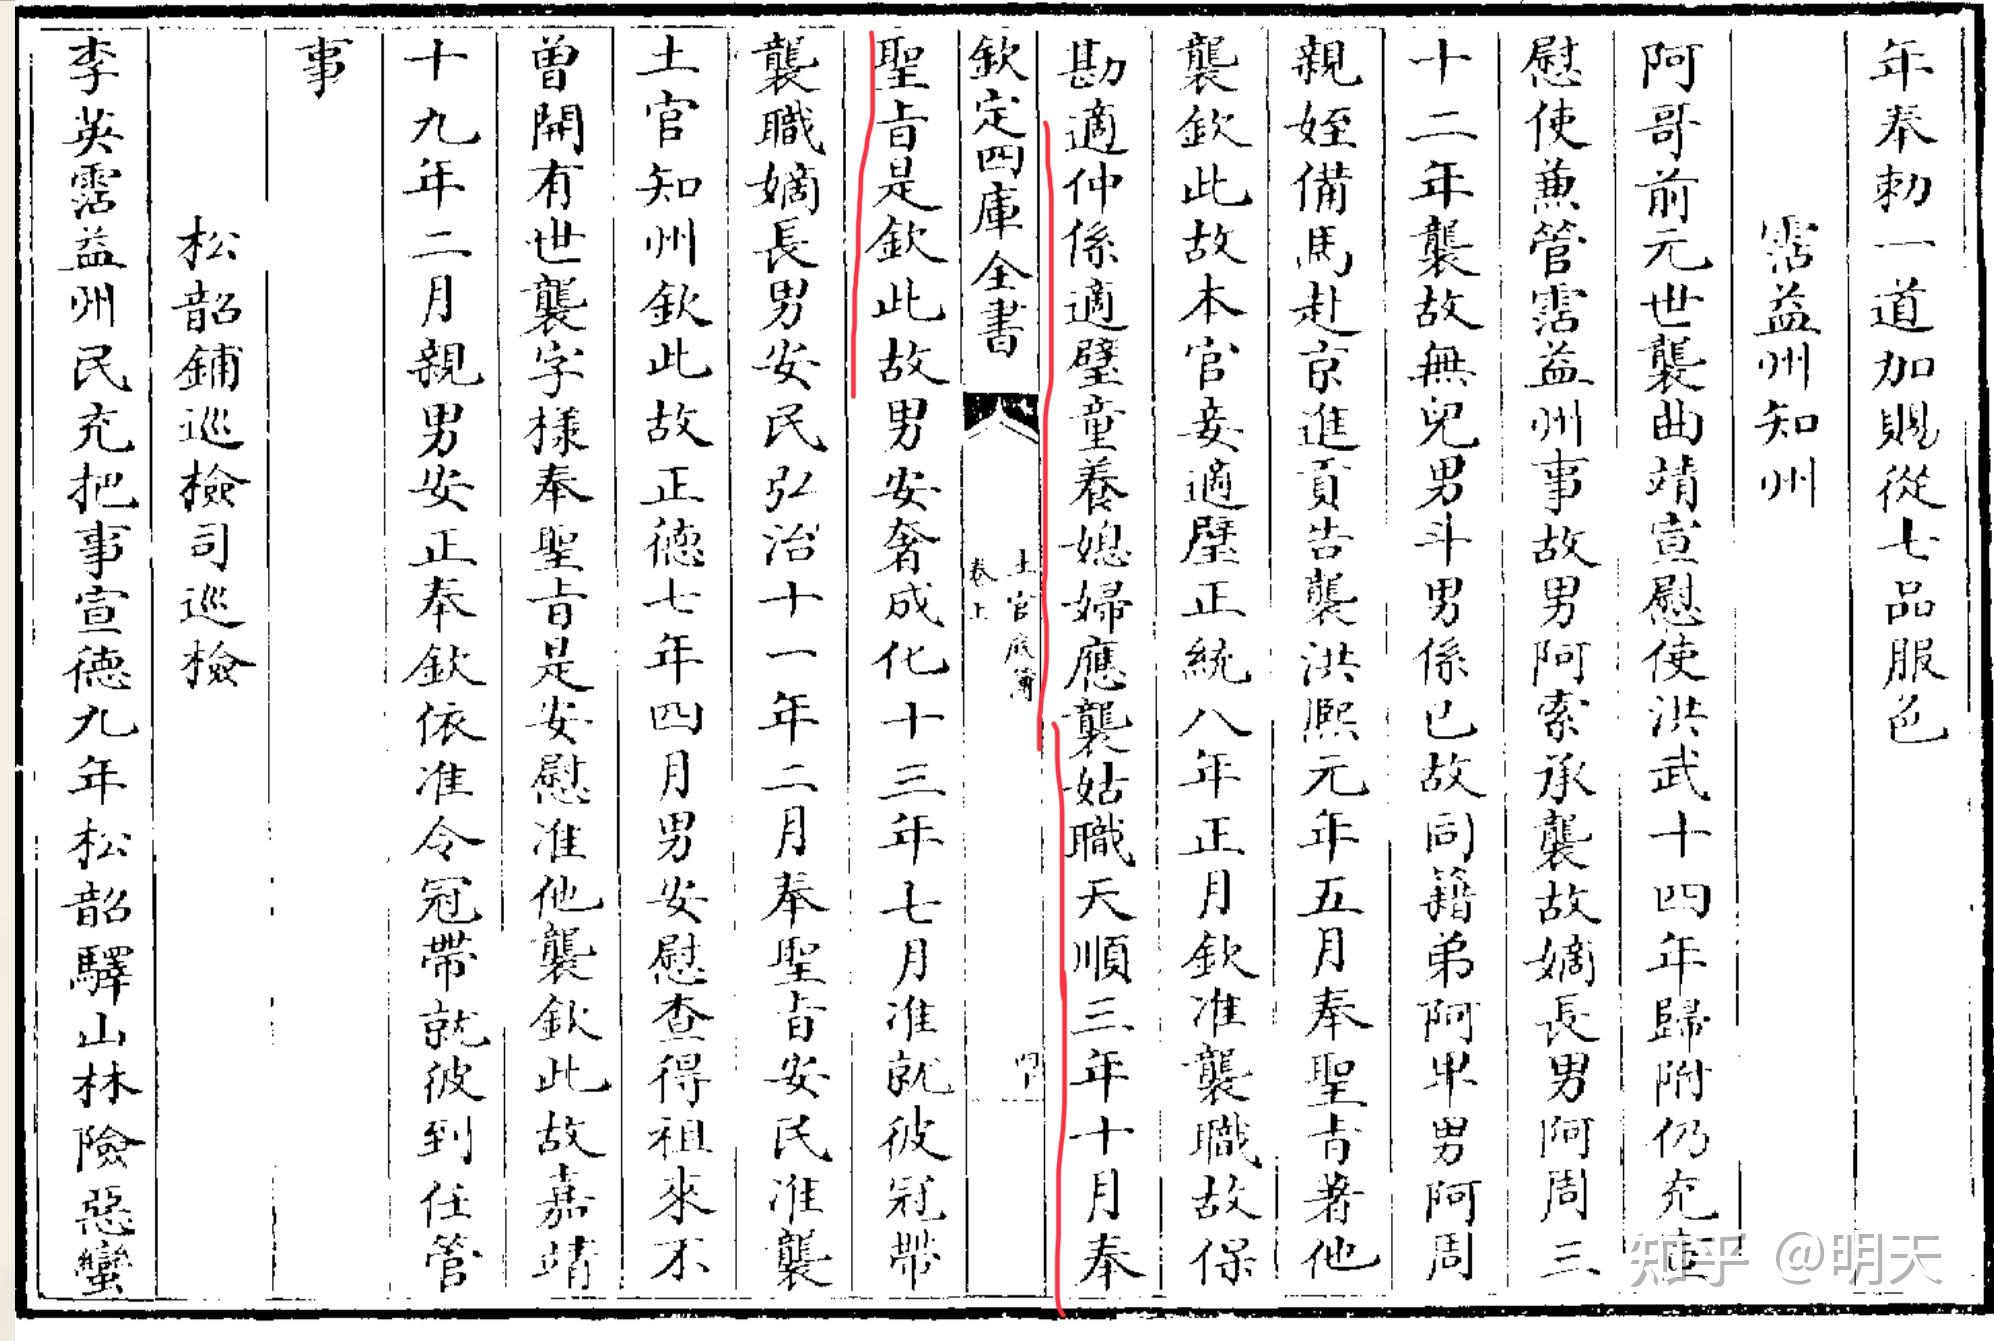 年奉勅一道加賜從七品服色
霑益州知州
阿哥前元世襲曲靖宣慰使洪武十四年歸附仍充宣
慰使兼管霑益州事故男阿索承襲故嫡長男阿周三
十二年襲故無兒男斗男係已故同籍弟阿畀男阿周
親姪備馬赴京進貢告襲洪熙元年五月奉聖旨著他
襲欽此故本官妾適璧正統八年正月欽准襲職故保
勘適仲係適璧童養媳婦應襲姑職天順三年十月奉
欽定四庫全書
土官底簿
卷上
聖旨是欽此故男安奢成化十三年七月准就彼冠帶
襲職嫡長男安民弘治十一年二月奉聖旨安民准襲
土官知州欽此故正德七年四月男安慰查得祖來不
曾開有世襲字樣奉聖旨是安慰准他襲欽此故嘉靖
十九年二月親男安正奉欽依准令冠帶就彼到任管
事
松韶鋪巡檢司巡檢
李英霑益州民充把事宣德九年松韶驛山林險惡蠻
知乎 @明天